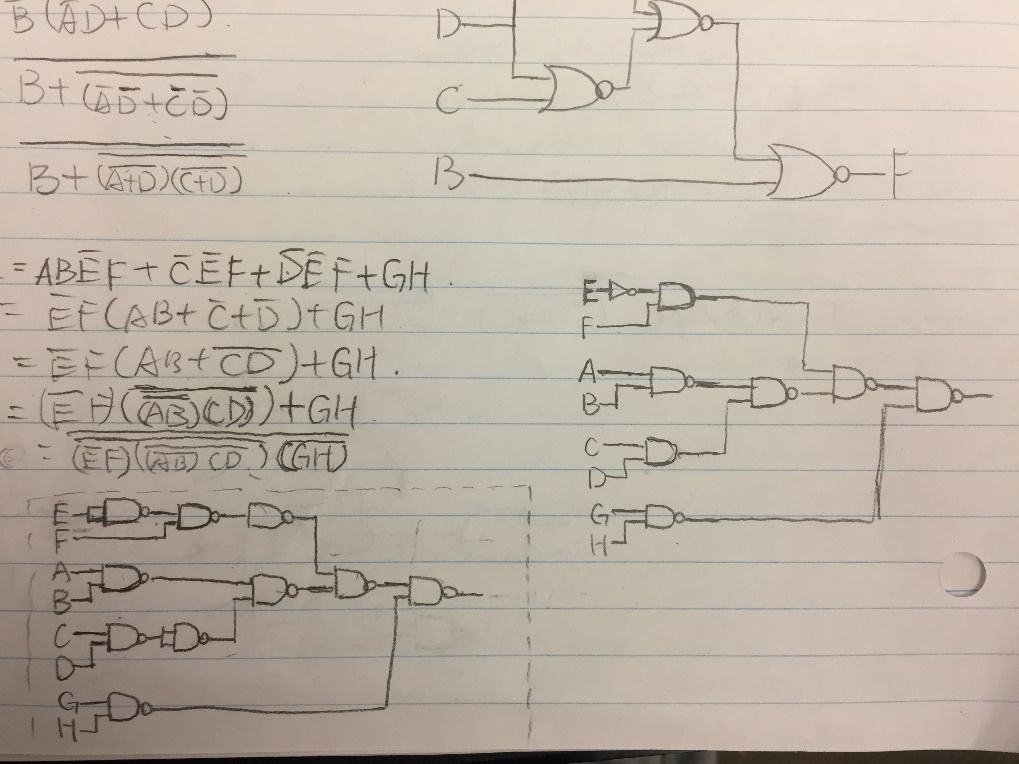 B̅(A̅D̅+C̅D̅).
B+(A̅D̅+C̅D̅)
B+(A+D)(C+D)
D
C
B
F
=ABE̅F+C̅E̅F+D̅E̅F+GH.
= E̅F(AB+C̅+D̅)+GH
= E̅F(AB+C̅D̅)+GH.
= (E̅F)((A̅B̅)(CD))+GH
= (E̅F)((A̅B̅)CD)(GH)
E
F
A
B
C
D
G
H
E
F
A
B
C
D
G
H